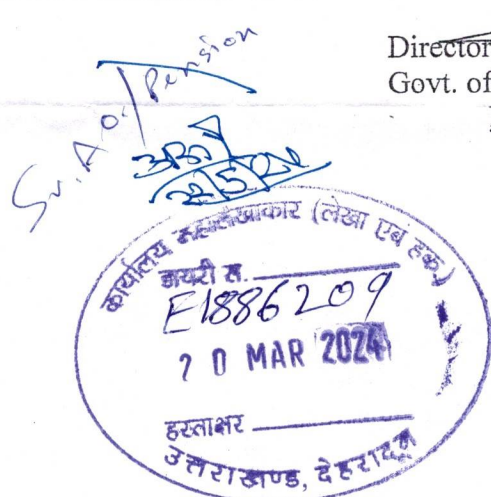 Director
Govt. of
Sr. A O/Pension
कार्यालय महालेखाकार (लेखा एवं हक.)
डायरी सं.
E1886209
20 MAR 2024
हस्ताक्षर
उत्तराखण्ड, देहरादून